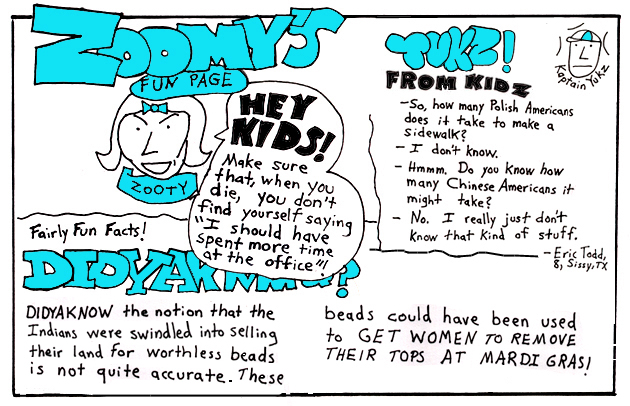 ZOOMY'S
FUN PAGE
ZOOTY
HEY
KIDS!
Make sure
that, when you
die, you don't
find yourself saying
"I should have
spent more time
at the office"!
YUKZ!
FROM KIDZ
Kaptain Yukz
-So, how many Polish Americans
does it take to make a
sidewalk?
- I don't know.
- Hmmm. Do you know how
many Chinese Americans it
might take?
- No. I really just don't
know that kind of stuff.
-Eric Todd,
8, Sissy, TX
Fairly Fun Facts!
DIDYAKNOW?
DIDYAKNOW the notion that the
Indians were swindled into selling
their land for worthless beads
is not quite accurate. These
beads could have been used
to GET WOMEN TO REMOVE
THEIR TOPS AT MARDI GRAS!